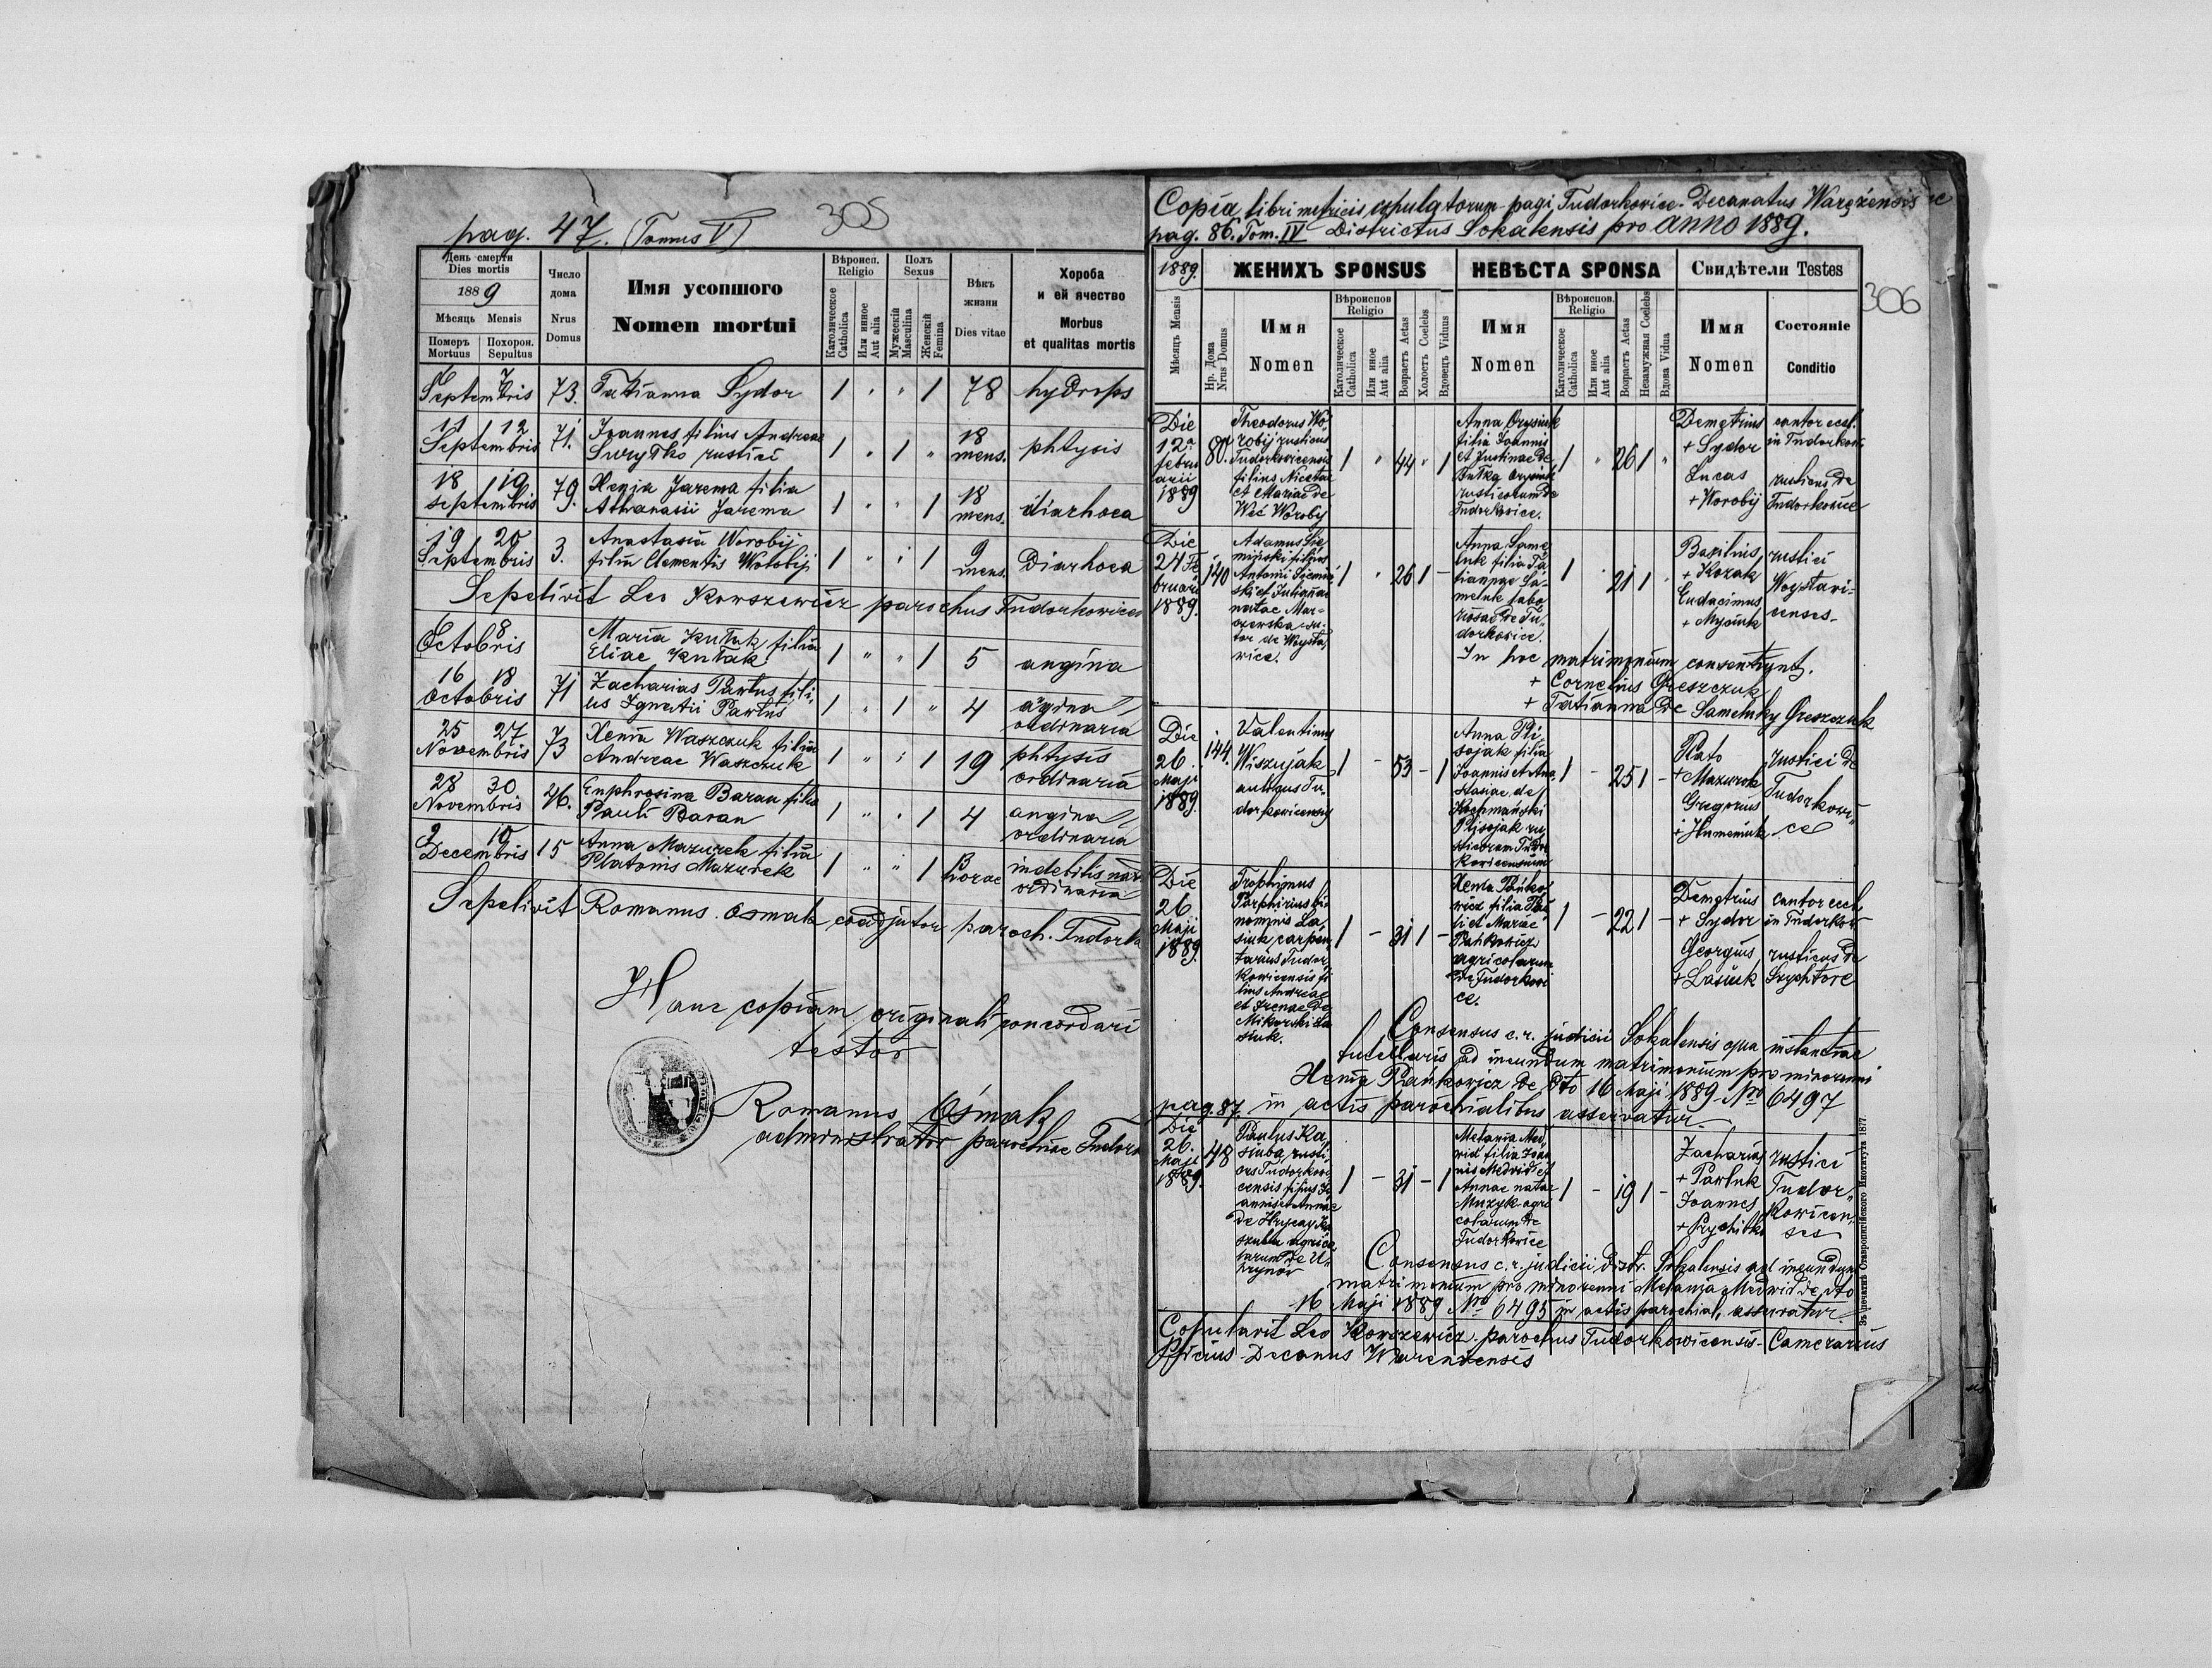 305
pag. 47. (Tomus V)
День смерти
Dies mortis
1889
Мѣсяць Mensis
Померъ Mortuus
Похорон. Sepultus
Число дома
Nrus Domus
Имя усопшого
Nomen mortui
Вѣроисп.
Religio
Католическое Catholica
Или инное Aut alia
Полъ
Sexus
Мужескій Masculina
Женскій Femina
Вѣкъ жизни
Dies vitae
Хороба
и ей ячество
Morbus
et qualitas mortis
7
Septembris 73. Tatianna Sydor 1 " " 1 78 hydrops
11 12 Joannes filius Andreae 18
Septembris 71. rustici 1 " 1 " mens. phtysis
18 19 Xenja Jarema filia 18
Septembris 79. Athanasii Jarema 1 " " 1 mens. diarhoea
19 20 Anastasia Worobij 9
Septembris 3. filia Clementis Worobij 1 " " 1 mens. Diarhoea
Sepelivit Leo Korszewicz parochus Tudorkovicen
6 8 Maria filia
Octobris Eliae 1 " " 1 5 angina
16 18 Zacharias Pawlus fili-
Octobris 71 us Ignatii Pawlus 1 " 1 " 4 angina ordinaria
25 27 Xenia Waszczuk filia
Novembris 73 Andreae Waszczuk 1 " " 1 19 phtysis ordinaria
28 30 Euphrosina Baran filia
Novembris 46. Pauli Baran 1 " " 1 4 angina ordinaria
9 10 Anna Mazurek filia
Decembris 15 Platonis Mazurek 1 " " 1 horae indebilis ordinaria
Sepelivit Romanus Osmak coadjutor paroch. Tudork
Hanc copiam originali concordari
testor
Romanus Ośmak
administrator parochiae Tudork
Copia libri metricis copulatorum pagi Tudorkovice Decanatus Warężensis
pag. 86. Tom. IV Districtus Sokalensis pro anno 1889.
306
1889.
ЖЕНИХЪ SPONSUS
НЕВѢСТА SPONSA
Свидѣтели Testes
Мѣсяць Mensis
Нр. Дома Nrus Domus
Имя
Nomen
Вѣроиспов.
Religio
Католическое Catholica
Или инное Aut alia
Возрастъ Aetas
Холостъ Coelebs
Вдовецъ Viduus
Имя
Nomen
Вѣроиспов.
Religio
Католическое Catholica
Или инное Aut alia
Возрастъ Aetas
Незамужная Coelebs
Вдова Vidua
Имя
Nomen
Состояніе
Conditio
Die
12a
febru
arii
1889
80.
Theodorus Wo-
robij rusticus
Tudorkovicensis
filius Nicetae
et Mariae de
Weć Worobij
1 " 44 " 1
Anna Orysiuk
filia Joannis
et Justinae de
Butka Orysiuk
rusticorum de
Tudorkovice.
1 " 26 1 "
Demetrius
+ Sydor
Lucas
+ Worobij
cantor eccl.
in Tudorkovi
rusticus de
Tudorkovice
Die
24 Fe
bruarii
1889.
140
Adamus Sie-
miński filius
Antonii Siemiń
ski et Julianae
natae Mar-
szewska su-
tor de Woysla-
wice.
1 " 26 1 -
Anna Same-
luk filia Ta-
tiannae Sa-
meluk labo
riosae de Tu-
dorkovice.
1 " 21 1 "
Basilius
+ Kozak
Eudocimus
+ Mysiuk
rustici
Woyslavi-
censes.
In hoc matrimonium consentiunt.
+ Cornelius Greszczuk
+ Tatianna de Sameluky Greszczuk
Die
26
Maji
1889.
144.
Valentinus
Wiszujak
Tu-
dorkovicensis
1 - 53 - 1
Anna Pli-
sojak filia
Joannis et Ana
stasiae de
Kochmański
Plisojak ru-
sticorum Tudor
kovicensium
1 - 25 1 -
Plato
+ Mazurek
Gregorius
+ Humeniuk
rustici de
Tudorkovi-
ce
Die
26
Maji
1889.
Trophimus
Porphirius bi-
nominis La-
siuk carpen
tarius Tudor
kovicensis fi-
lius Andreae
et Irenae de
Mikorski La
siuk.
1 - 31 1 -
Xenia Pańko-
wicz filia Pau
li et Mariae
Pańkowicz
agricolarum
de Tudorkovi
ce.
1 - 22 1 -
Demetrius
+ Sydor
Georgius
+ Lasiuk
cantor eccl.
in Tudorkov
rusticus de
Szychtore
Consensus c.r. judicii Sokalensis qua instantiae
tutellaris ad ineundum matrimonium pro minorenni
Xenia Pańkowicz de dto 16 Maji 1889 No 6497
pag. 87. in actis parochialibus asservatur.
Die
26.
Maji
1889.
48
Paulus Ka-
sti-
cus Tudorkovi
censis filius Jo
annis et Annae
de Hrycay Ka
szuba agrico-
larum de U-
hrynów
1 - 31 - 1
Melania Med-
wid filia Joan
nis Medwid et
Annae natae
Muzyk agri
colarum de
Tudorkovice
1 - 19 1 -
Zacharias
+ Pawluk
Joannes
+ Prychitko
rustici
Tudor-
kovicen-
ses
Consensus c.r. judicii distr. Sokalensis ad ineundum
matrimonium pro minorenni Melania Medwid de dto
16 Maji 1889 No 6495 in actis parochial. asservatur.
Copulavit Leo Korszewicz parochus Tudorkowicensis Camerarius
Decanus
Зъ печатнѣ Ставропигійского Института 1877